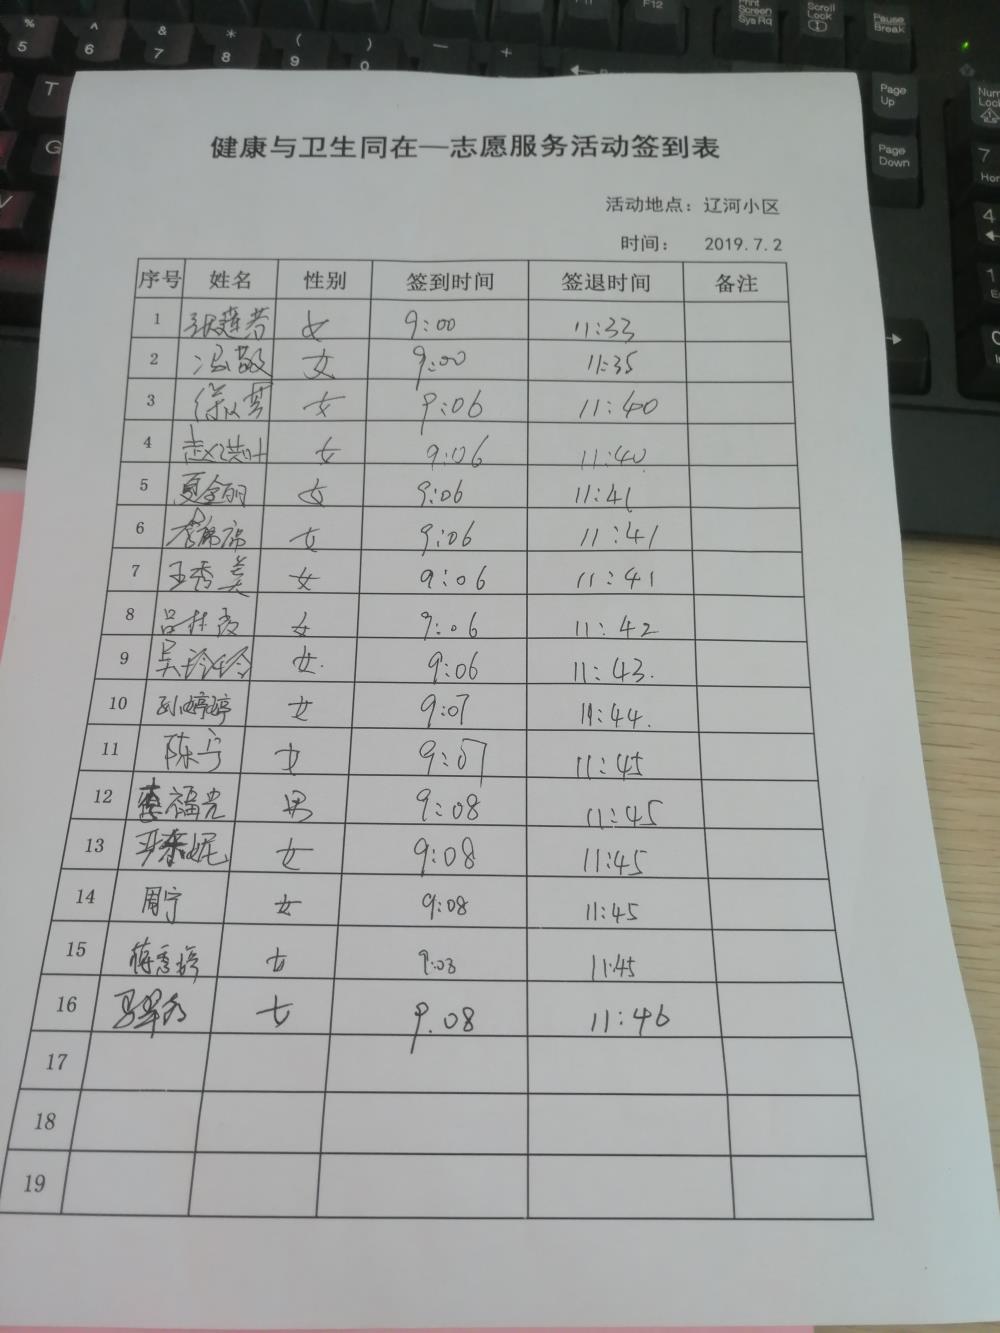 健康与卫生同在—志愿服务活动签到表
活动地点：辽河小区
时间： 2019.7.2
序号 姓名 性别 签到时间 签退时间 备注
1 张莲芳 女 9:00 11:33
2 冯敬 女 9:00 11:35
3 女 9:06 11:40
4 赵洪叶 女 9:06 11:40
5 夏金丽 女 9:06 11:41
6 女 9:06 11:41
7 王秀美 女 9:06 11:41
8 吕林霞 女 9:06 11:42
9 吴玲玲 女 9:06 11:43
10 孙婷婷 女 9:07 11:44
11 陈宁 女 9:07 11:45
12 李福光 男 9:08 11:45
13 女 9:08 11:45
14 周宁 女 9:08 11:45
15 女 9:08 11:45
16 女 9.08 11:46
17
18
19
% 5
^ 6
& 7
* 8
( 9
) 0
T
G
F12
Print Screen Sys Rq
Scroll Lock
Pause Break
Page Up
Page Down